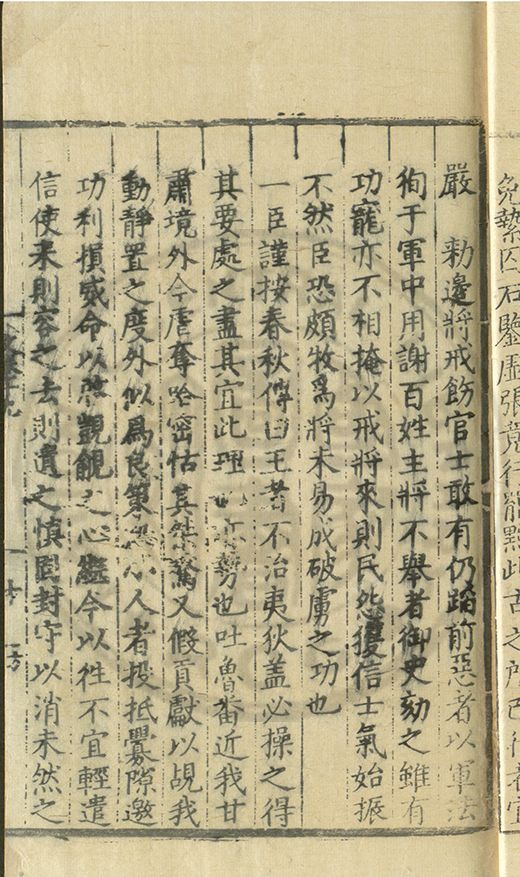 免縶囚石鑒虛張竟行罷黜此古之所已行者宜
嚴　勑邊將戒飭官士敢有仍蹈前惡者以軍法
徇于軍中用謝百姓主將不舉者御史劾之雖有
功寵亦不相掩以戒將來則民怨獲信士氣始振
不然臣恐頗牧爲將未易成破虜之功也
一臣謹按春秋傳曰王者不治夷狄盖必操之得
其要處之盡其宜此理勢也吐魯畨近我甘
肅境外今虐奪哈密怙其桀驁又假貢獻以覘我
動靜置之度外似爲良策小人者投抵釁隙邀
功利損威命以啓覬覦之心繼今以徃不宜輕遣
信使来則容之去則遣之慎固封守以消未然之